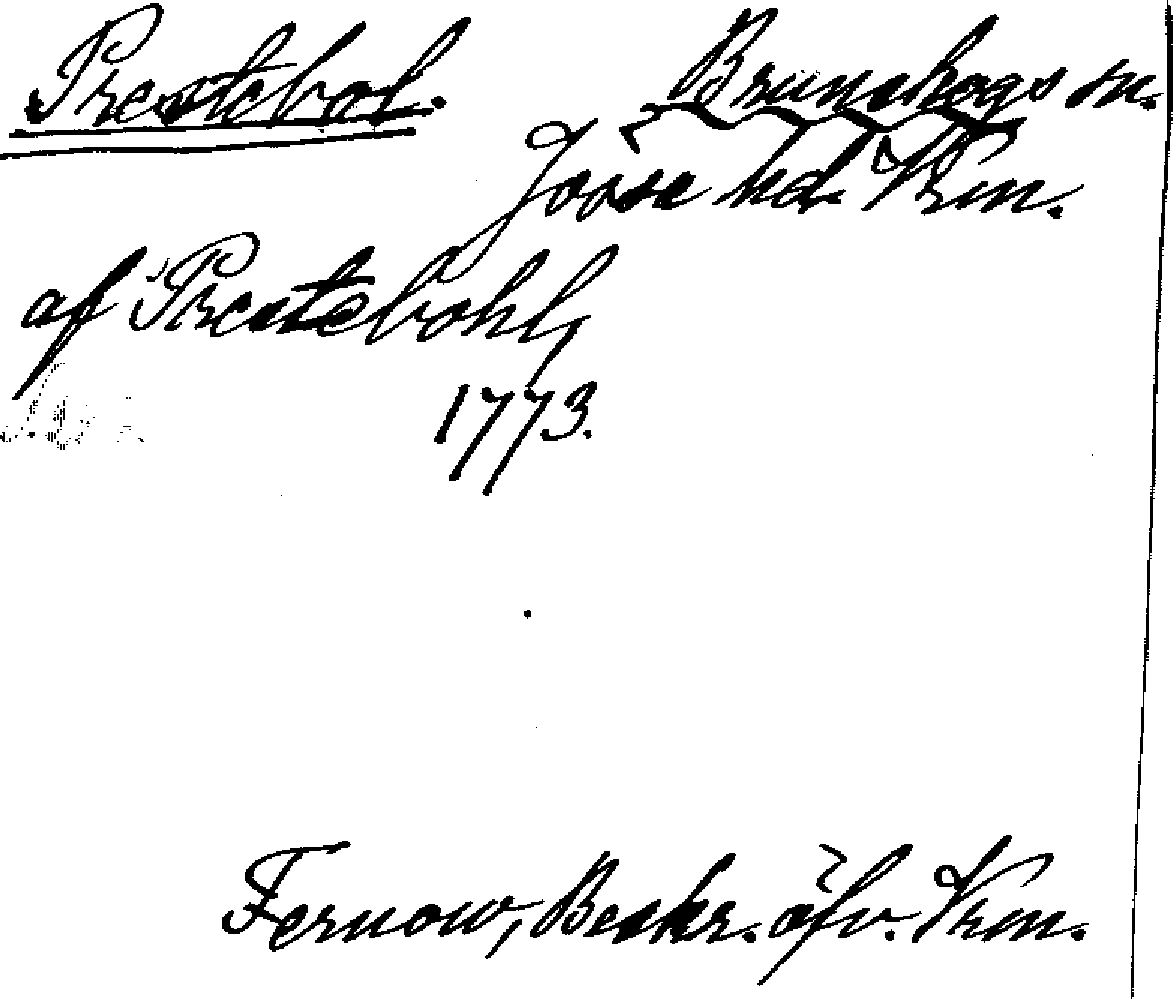 Prestebol. Brunskogs sn.
Jösse hd. Vrm.
af Prestebohl,
1773.
Fernow, Beskr. öfv. Vrm.